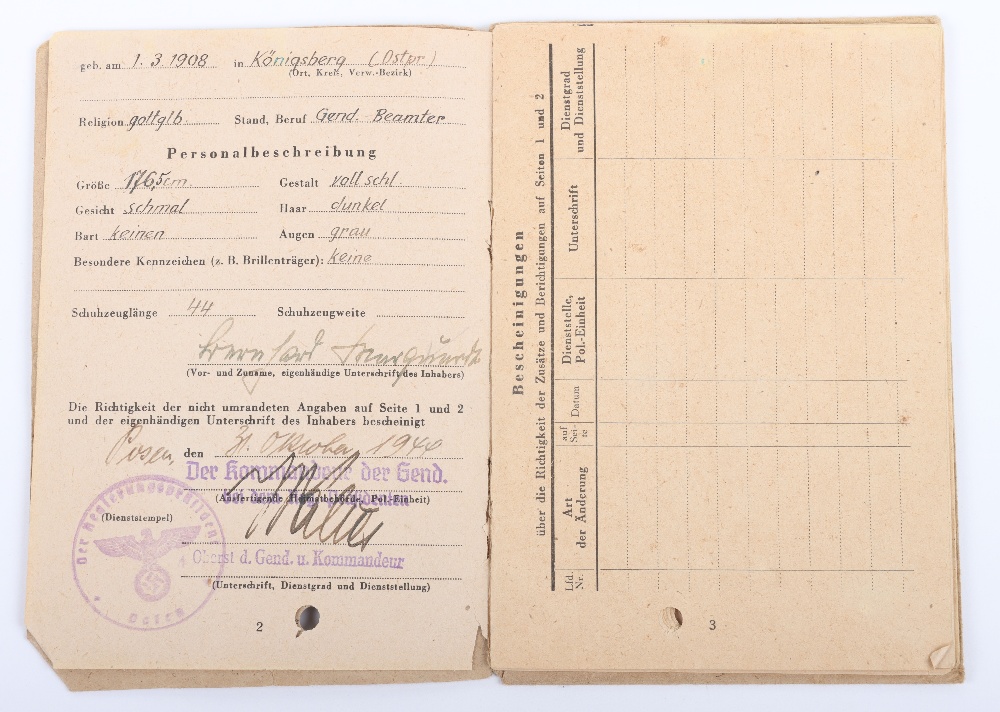 geb. am 1. 3. 1908 in Königsberg (Ostpr.)
(Ort, Kreis, Verw.-Bezirk)
Religion gottglb. Stand, Beruf Gend. Beamter
Personalbeschreibung
Größe 176,5 cm. Gestalt voll schl.
Gesicht schmal Haar dunkel
Bart keinen Augen grau
Besondere Kennzeichen (z. B. Brillenträger): keine
Schuhzeuglänge 44 Schuhzeugweite
Bernhard
(Vor- und Zuname, eigenhändige Unterschrift des Inhabers)
Die Richtigkeit der nicht umrandeten Angaben auf Seite 1 und 2
und der eigenhändigen Unterschrift des Inhabers bescheinigt
Posen, den 31. Oktober 1940
Der Kommandeur der Gend.
(Ausfertigende Heimatbehörde, Pol.-Einheit)
bei dem Reg. Präsidenten
(Dienststempel)
Der Regierungspräsident
Posen
Oberst d. Gend. u. Kommandeur
(Unterschrift, Dienstgrad und Dienststellung)
2
Bescheinigungen
über die Richtigkeit der Zusätze und Berichtigungen auf Seiten 1 und 2
Lfd. Nr.
Art der Änderung
auf Sei- te
Datum
Dienststelle, Pol.-Einheit
Unterschrift
Dienstgrad und Dienststellung
3